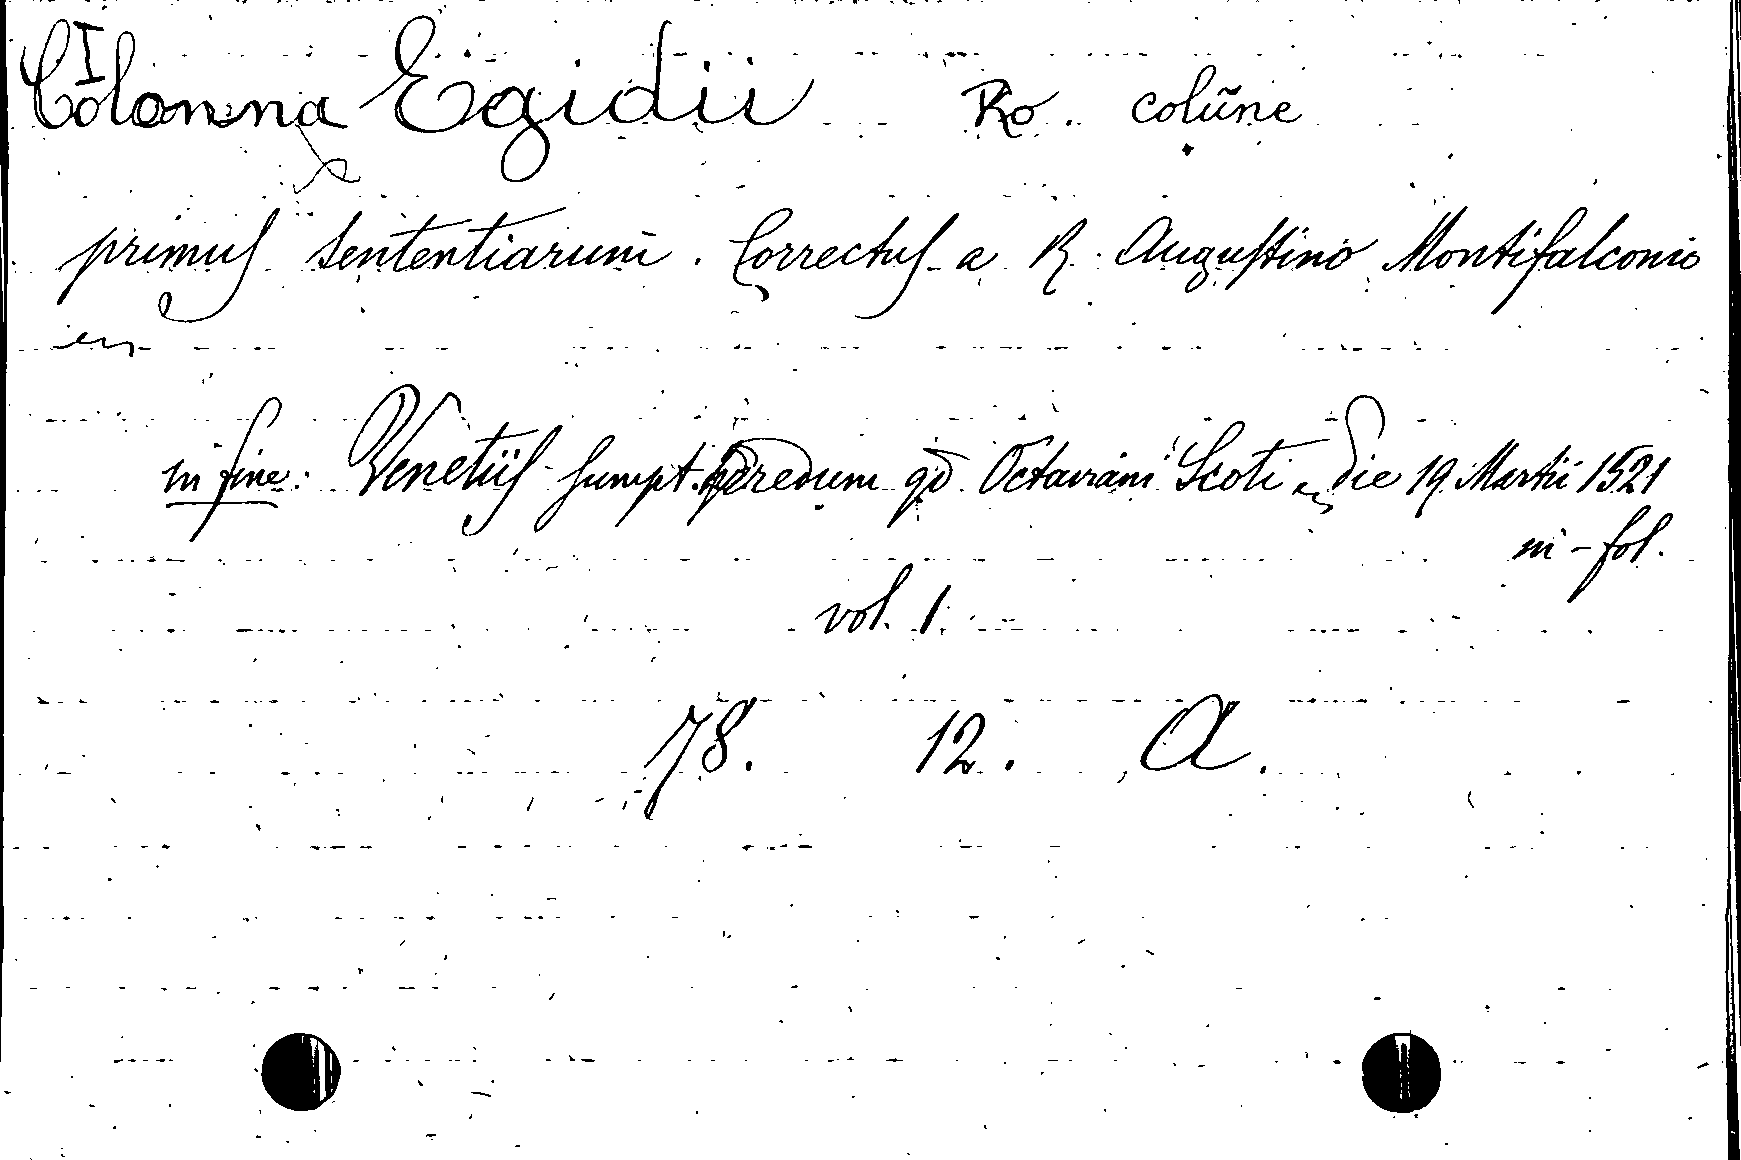 I
Colonna Egidii Ro. colūne
primus sententiarum. Correctus a R. Augustino Montifalconio
in fine: Venetiis sumpt. heredum qd Octaviani Scoti die 19 Martii 1521
in-fol.
vol. 1.
78. 12. A.